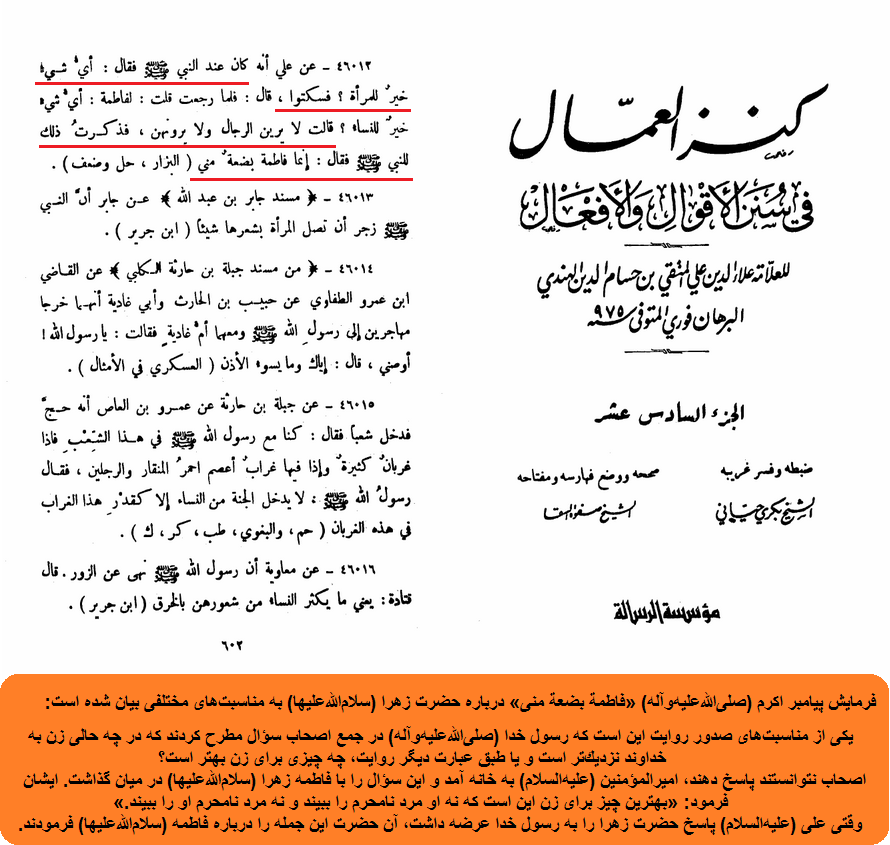 كنز العمّال
في سنن الأقوال والأفعال
للعلامة علاء الدين علي المتقي بن حسام الدين الهندي
البرهان فوري المتوفى سنة ٩٧٥
الجزء السادس عشر
ضبطه وفسر غريبه
الشيخ بكري حياني
صححه ووضع فهارسه ومفتاحه
الشيخ صفوة السقا
مؤسسة الرسالة
٤٦٠١٢ – عن علي أنه كان عند النبي ﷺ فقال : أيُّ شيءٍ
خيرٌ للمرأة ؟ فسكتوا ، قال : فلما رجعت قلت : لفاطمة : أيُّ شيءٍ
خيرٌ للنساء ؟ قالت لا يرين الرجال ولا يرونهن ، فذكرتُ ذلك
للنبي ﷺ فقال : إنما فاطمة بضعةٌ مني ( البزار ، حل وضعف ) .
٤٦٠١٣ – ﴿ مسند جابر بن عبد الله ﴾ عن جابر أنَّ النبي
ﷺ زجر أن تصل المرأة بشعرها شيئاً ( ابن جرير ) .
٤٦٠١٤ – ﴿ من مسند جبلة بن حارثة الكلبي ﴾ عن القاضي
ابن عمرو الطفاوي عن حبيب بن الحارث وأبي غادية أنهما خرجا
مهاجرين إلى رسولِ الله ﷺ ومعهما أمُّ غاديةٍ فقالت : يا رسول الله !
أوصني ، قال : إياك وما يسوءُ الأذن ( العسكري في الأمثال ) .
٤٦٠١٥ – عن جبلة بن حارثة عن عمرو بن العاص أنه حجَّ
فدخل شعباً فقال : كنا مع رسول الله ﷺ في هذا الشِّعْبِ فاذا
غربانٌ كثيرةٌ وإذا فيها غرابٌ أعصم احمرُ المنقار والرجلين ، فقال
رسولُ الله ﷺ : لا يدخل الجنة من النساء إلا كقدْرِ هذا الغراب
في هذه الغربان ( حم ، والبغوي ، طب ، كر ، ك ) .
٤٦٠١٦ – عن معاوية أن رسول الله ﷺ نهى عن الزور . قال
قتادة : يعني ما يكثر النساء من شعورهن بالخرق ( ابن جرير ) .
٦٠٢
فرمایش پیامبر اکرم (صلی‌الله‌علیه‌وآله) «فاطمة بضعة منی» درباره حضرت زهرا (سلام‌الله‌علیها) به مناسبت‌های مختلفی بیان شده است:
یکی از مناسبت‌های صدور روایت این است که رسول خدا (صلی‌الله‌علیه‌وآله) در جمع اصحاب سؤال مطرح کردند که در چه حالی زن به
خداوند نزدیک‌تر است و یا طبق عبارت دیگر روایت، چه چیزی برای زن بهتر است؟
اصحاب نتوانستند پاسخ دهند، امیرالمؤمنین (علیه‌السلام) به خانه آمد و این سؤال را با فاطمه زهرا (سلام‌الله‌علیها) در میان گذاشت. ایشان
فرمود: «بهترین چیز برای زن این است که نه او مرد نامحرم را ببیند و نه مرد نامحرم او را ببیند.»
وقتی علی (علیه‌السلام) پاسخ حضرت زهرا را به رسول خدا عرضه داشت، آن حضرت این جمله را درباره فاطمه (سلام‌الله‌علیها) فرمودند.